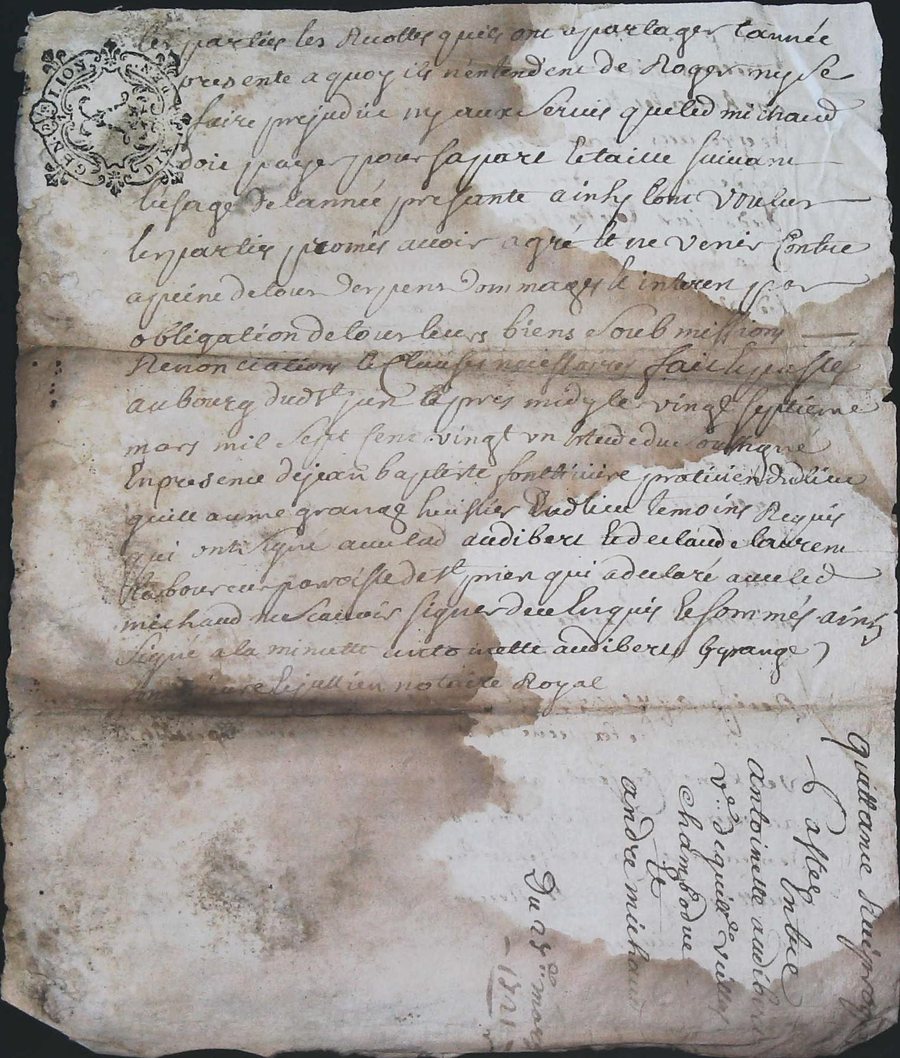 les parties les Recoltes quils ont a partager lannée
presente a quoy ils n'entendent de Roger ny se
faire prejudice ny aux servis que led michaud
doit payer pour sa part et taille suivant
lusage de lannée presante ainsy lont voulus
les parties promis avoir agré et ne venir contre
a peine de tous despens dommages et interets par
obligation de tous leurs biens soubmissions
Renonciations et Clauses necessaires fait et passé
au bourg dud st jan apres midy le vingt septieme
mars mil sept cent vingt un
En presence de jean baptiste praticien dud lieu
guillaume grange huissier dud lieu temoins Requis
qui ont signé avec lad audibert et de claude laurent
Laboureur paroisse de st prien qui a declaré avec led
michaud ne scavoir signer de ce Enquis et sommés ainsy
signé a la minutte antoinette audibert grange
et jullien notaire Royal
GENER LION
quittance
passée Entre
antoinette audibert
ve de guille
chambodue
&
andré michaud
Du mars
1721